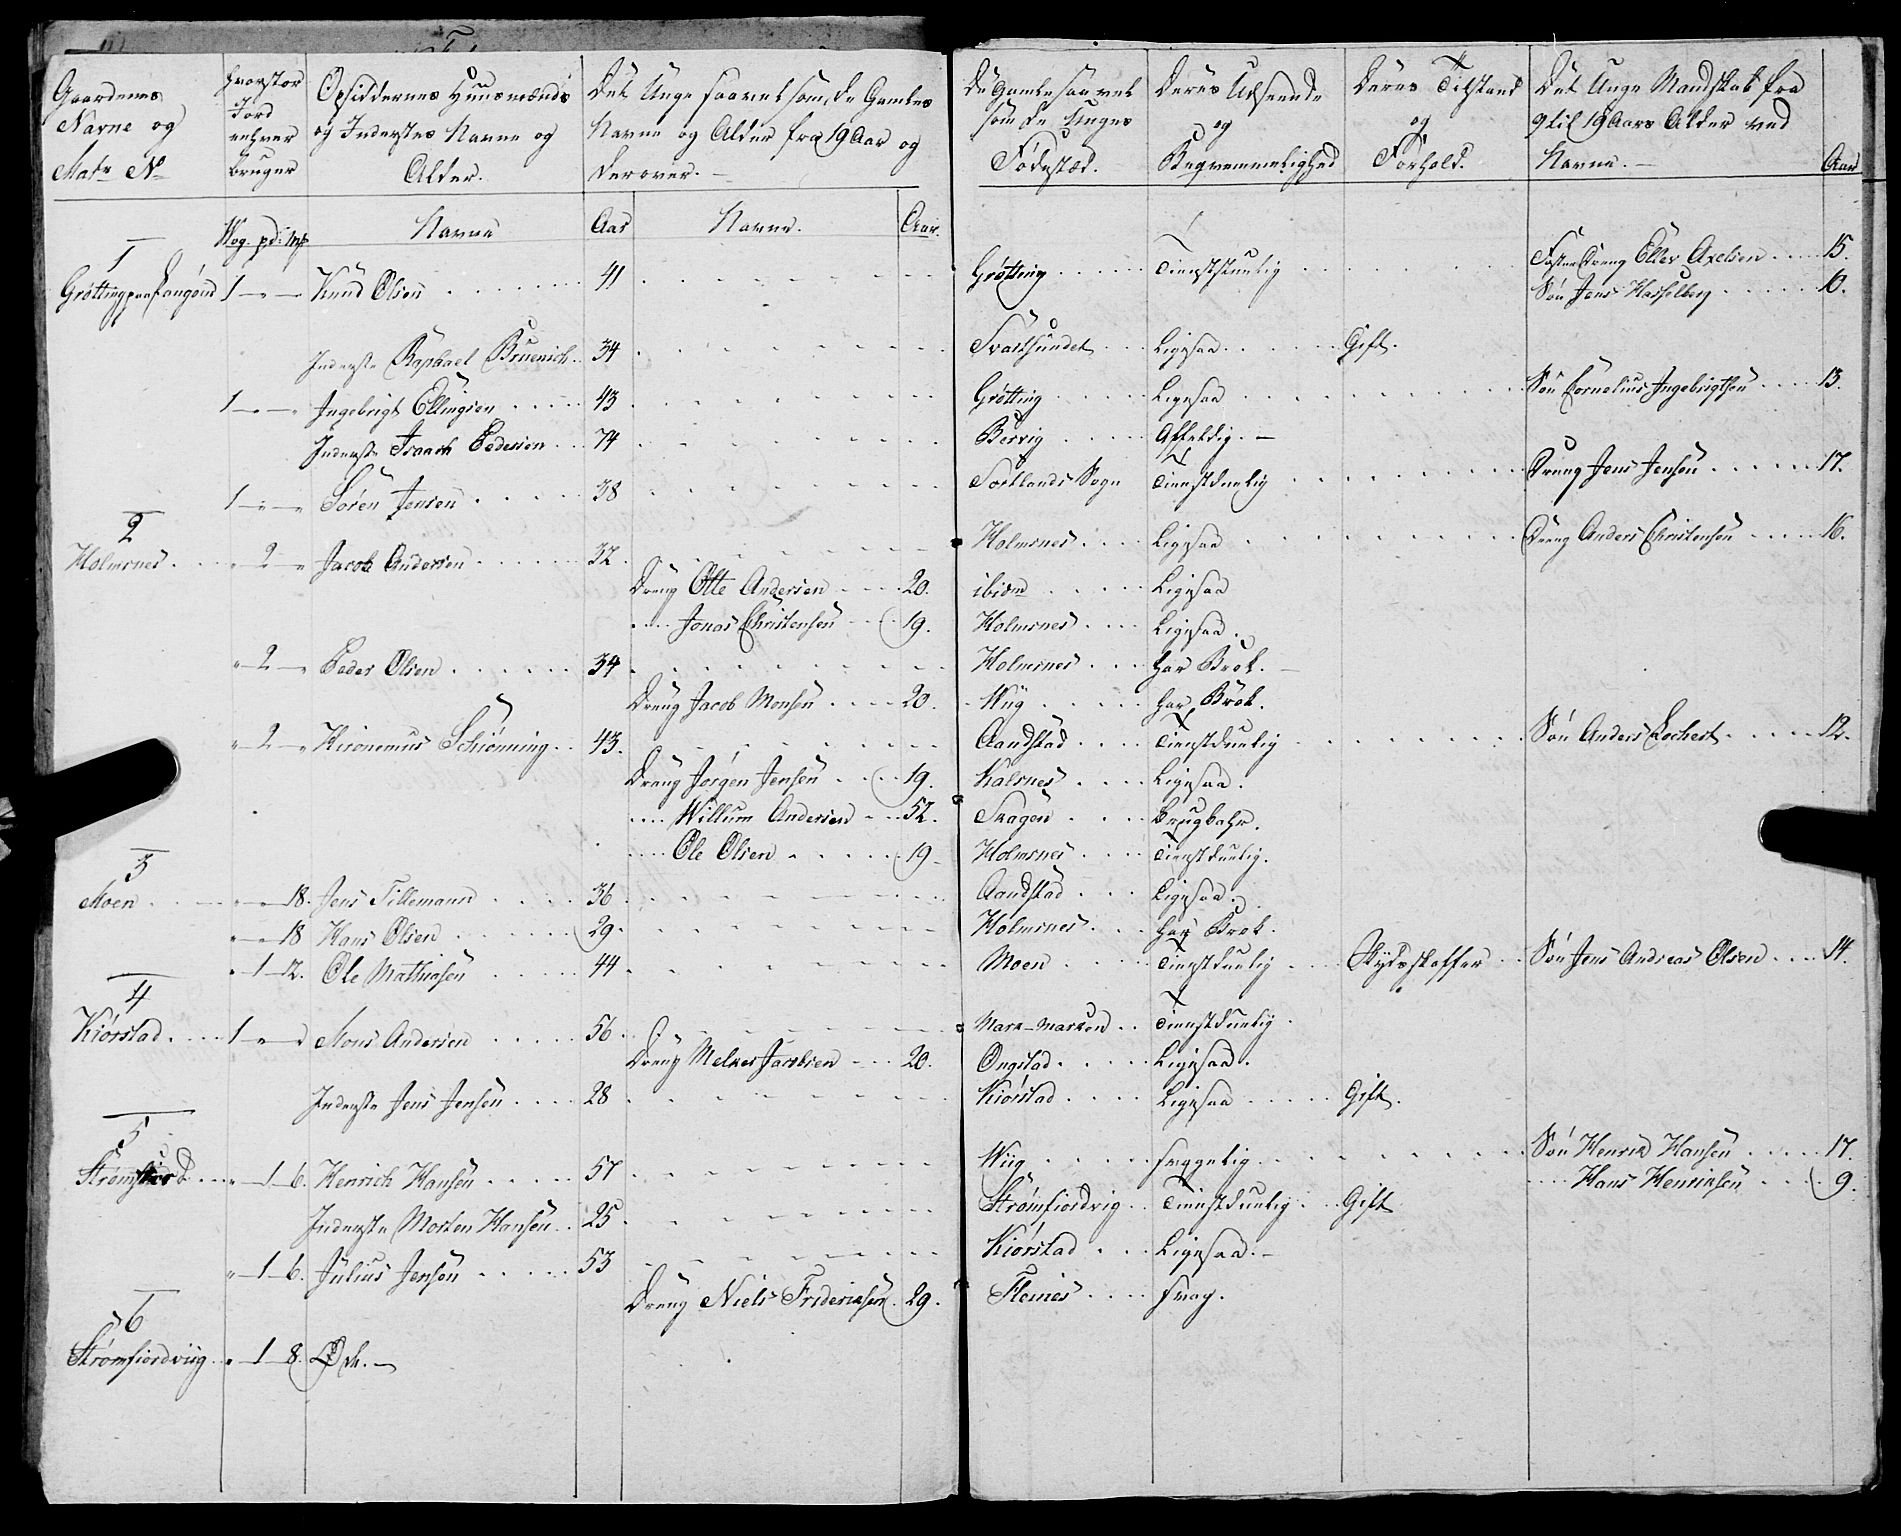 Gaardenes Navne og Matr No | Hvorstor Jord enhver bruger | Opsiddernes Huusmænds og Inderstes Navne og Alder. | Det Unge saavel som de Gamles Navne og Alder fra 19 Aar og derover. — | De Gamle saavel som de Unges Fødested. | Deres Udseende og Beqvemmelighed | Deres Tilstand og Forhold. | Det Unge Mandskab fra 9 til 19 Aars Alder ved Navne. — | Aar
Wog. pd: Mk | Navne | Aar | Navne. | Aar.
1
Fosterdreng Eller Axelsen 15.
Grøttingpaa Langøund 1 — „ — Knud Olsen 41 Grøtting Tienstduelig
Søn Jens Hasselberg 10.
Inderste Raphael Bruenich 34 Svartsundet Ligesaa Gift.
1 — „ — „ Ingebrigt Ellingsen 43 Grøtting Ligesaa Søn Cornelius Ingebrigtsen 13.
Inderste Isaach Pedersen 74 Bervig Affeldig. —
1 — „ — „ Søren Jensen 38 Sortlands Sogn Tienstduelig Dreng Jens Jensen 17.
2
Holmsnes „ 2 „ Jacob Andersen 32 Holmsnes Ligesaa Dreng Anders Christensen 16.
Dreng Otte Andersen 20. ibidm Ligesaa
Jonas Christensen 19. Holmsnes Ligesaa.
„ 2 „ Peder Olsen 34 Holmsnes har Brok. —
Dreng Jacob Monsen 20. Wiig har Brok.
„ 2 „ Hironemus Schiønning 43. Aandstad Tienstduelig Søn Anders Lochert 12.
Dreng Jørgen Jensen 19. Kalsnes Ligesaa.
Willum Andersen 52. Skagen Brugbahr.
Ole Olsen 19. Holmsnes Tienstduelig.
3
Moen „ „ 18. Jens Tillemann 36 Aandstad Ligesaa.
„ „ 18 Hans Olsen 29. Holmsnes har Brok.
„ 1 12. Ole Mathiasen 44 Moen Tienstduelig Skydsskaffer Søn Jens Andreas Olsen 14.
4
Kiørstad 1 „ „ Mons Andersen 56 Mark-marken Tienstduelig.
Dreng Melker Jacobsen 20. Ongstad Ligesaa.
Inderste Jens Jensen 28 Kiørstad Ligesaa Gift.
5
Strømfiord „ 1 6. Henrich Hansen 57 Wiig skrøbelig Søn Henrik Hansen 17.
Hans Henriksen 9.
Inderste Morten Hansen 25 Strømfiordvig Tienstduelig Gift
„ 1 6. Julius Jensen 53 Kiørstad Ligesaa. —
Dreng Niels Frideriksen 29. Fleines svag.
6
Strømfiordviig „ 1 8. Øde. —